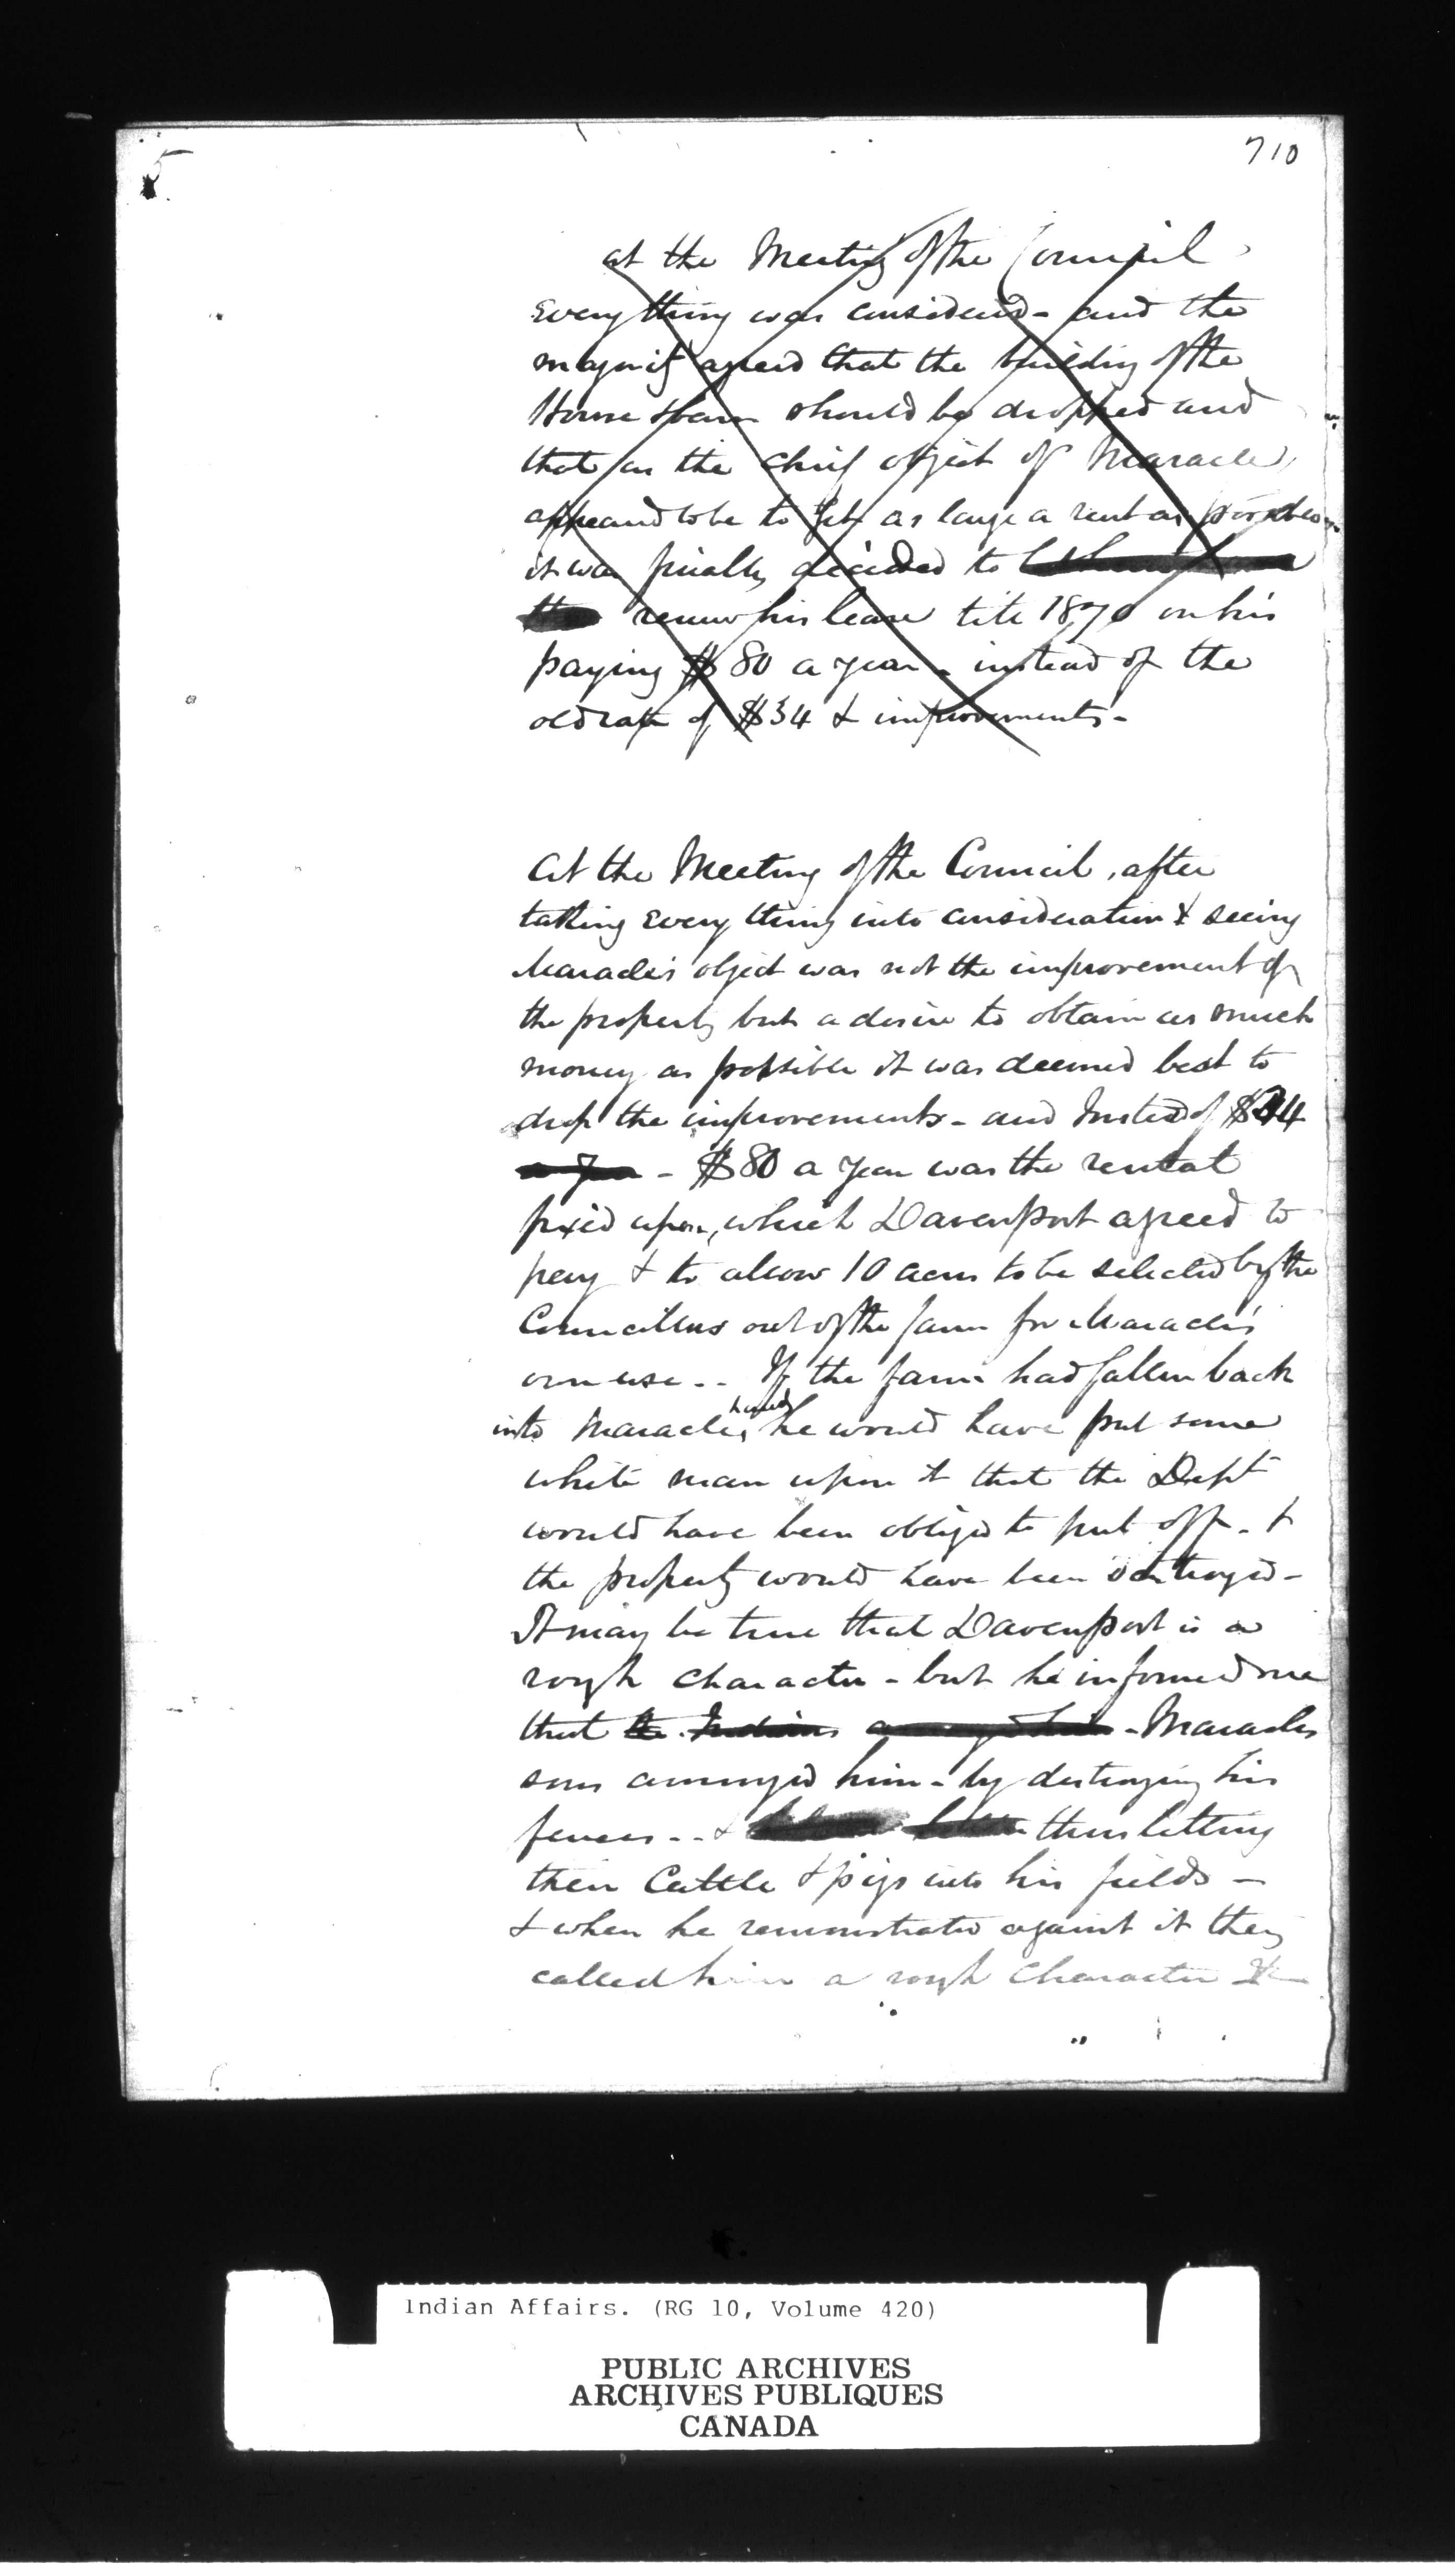 5
710
at the Meeting of the Council
Every thing was considered - and the
majority agreed that the building of the
House & barn should be dropped and
that as the chief object of Maracle
appeared to be to get as large a rent as possible
it was finally decided to
the renew his lease till 1870 on his
paying $80 a year - instead of the
old rate of $34 & improvements -
At the Meeting of the Council, after
taking Every thing into consideration & seeing
Maracle's object was not the improvement of
the property but a desire to obtain as much
money as possible it was deemed best to
drop the improvements - and Insted of $34
a year - $80 a year was the rental
fixed upon, which Davenport agreed to
pay & to allow 10 acres to be selected by the
Councillors out of the farm for Maracle's
own use - - If the farm had fallen back
into Maracles hands he would have put some
white man upon it that the Dept
would have been obliged to put off - &
the property would have been destroyed -
It may be true that Davenport is a
rough character - but he informed me
that the Indians annoyed him - Maracles
sons annoyed him - by destroying his
fences - - & thus letting
their Cattle & pigs into his fields -
& when he remonstrated against it they
called him a rough Character &c
Indian Affairs. (RG 10, Volume 420)
PUBLIC ARCHIVES
ARCHIVES PUBLIQUES
CANADA